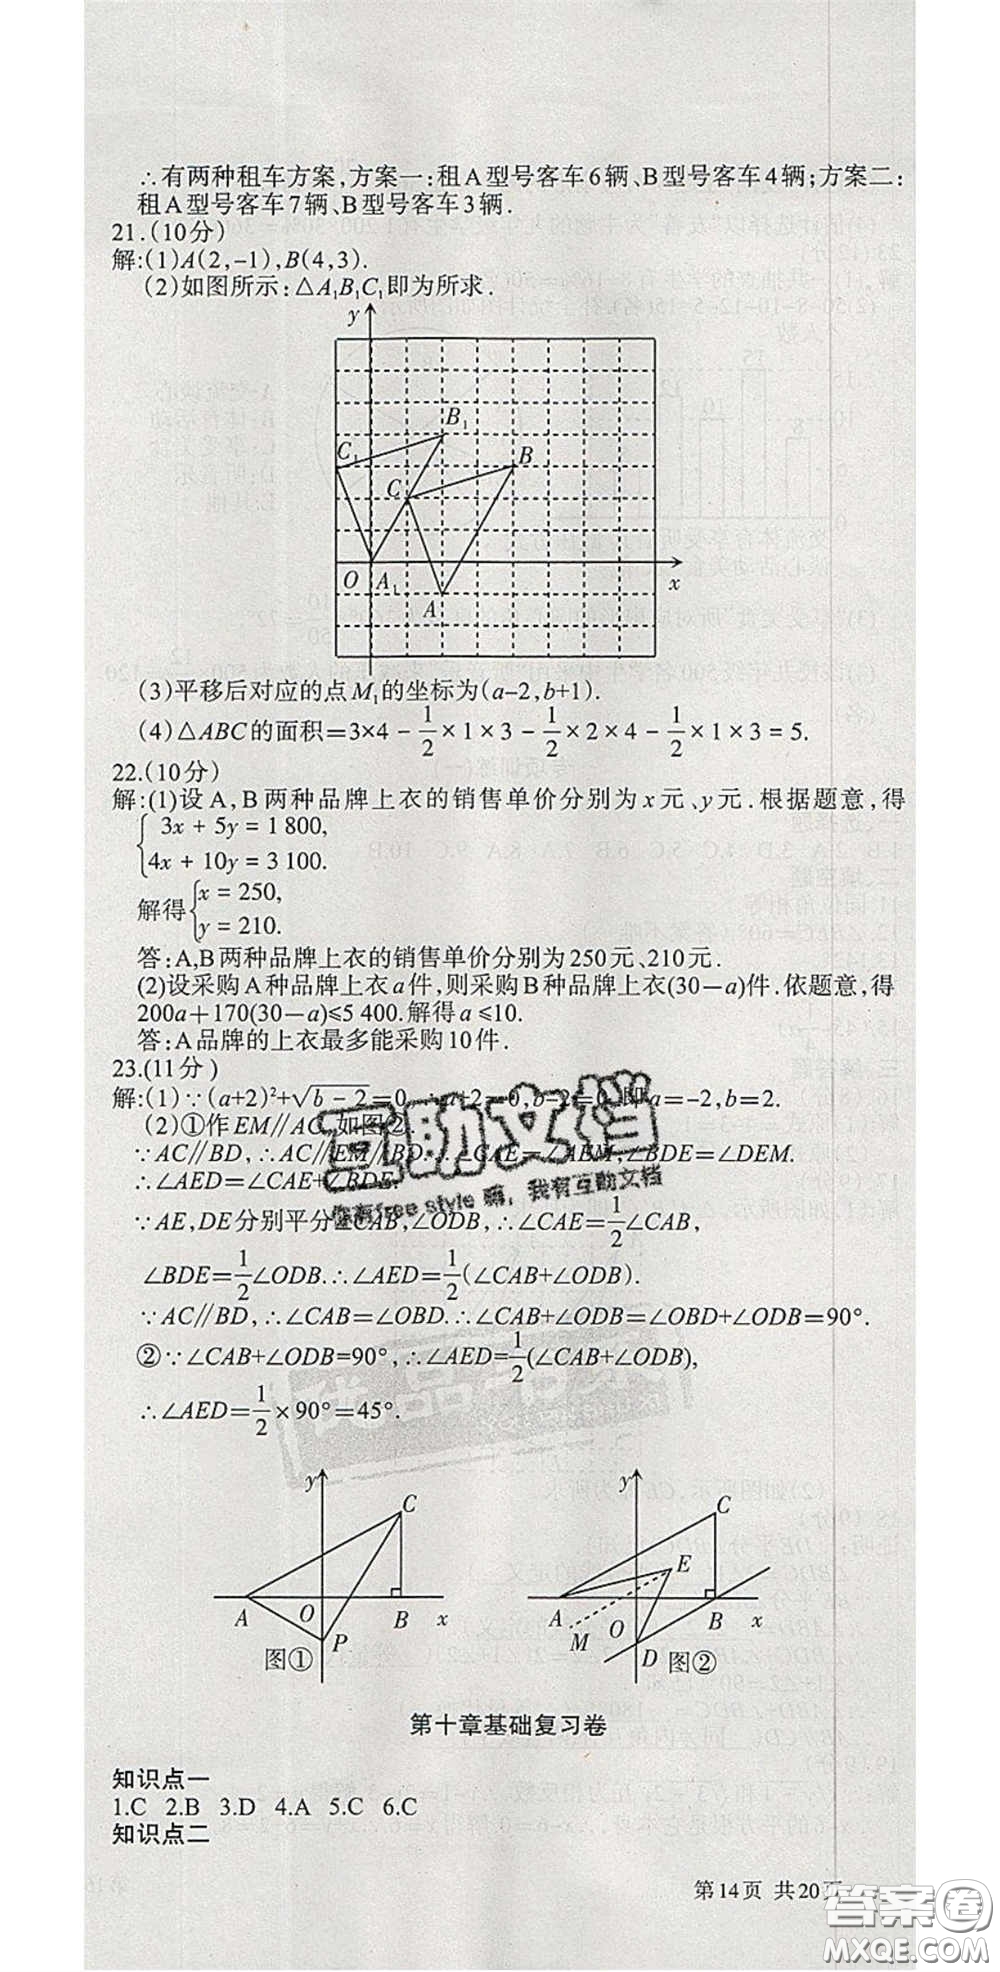 ∴有两种租车方案,方案一:租A型号客车6辆、B型号客车4辆;方案二:
租A型号客车7辆、B型号客车3辆.
21.(10分)
解:(1)A(2,-1),B(4,3).
(2)如图所示:△A₁B₁C₁即为所求.
y
B₁
C₁
B
C
O A₁
x
A
(3)平移后对应的点M₁的坐标为(a-2,b+1).
(4)△ABC的面积=3×4-1/2×1×3-1/2×2×4-1/2×1×3=5.
22.(10分)
解:(1)设A,B两种品牌上衣的销售单价分别为x元、y元.根据题意,得
3x+5y=1 800,
4x+10y=3 100.
解得 x=250,
y=210.
答:A,B两种品牌上衣的销售单价分别为250元、210元.
(2)设采购A种品牌上衣a件,则采购B种品牌上衣(30-a)件.依题意,得
200a+170(30-a)≤5 400.解得a≤10.
答:A品牌的上衣最多能采购10件.
23.(11分)
解:(1)∵(a+2)²+√(b-2)=0,∴a+2=0,b-2=0,即a=-2,b=2.
(2)①作EM∥AC,如图②.
∵AC∥BD,∴AC∥EM∥BD.∴∠CAE=∠AEM,∠BDE=∠DEM.
∴∠AED=∠CAE+∠BDE.
∵AE,DE分别平分∠CAB,∠ODB,∴∠CAE=1/2∠CAB,
∠BDE=1/2∠ODB.∴∠AED=1/2(∠CAB+∠ODB).
∵AC∥BD,∴∠CAB=∠OBD.∴∠CAB+∠ODB=∠OBD+∠ODB=90°.
②∵∠CAB+∠ODB=90°,∴∠AED=1/2(∠CAB+∠ODB),
∴∠AED=1/2×90°=45°.
互助文档
你有free style 嘛,我有互助文档
y
C
A O B x
P
图①
y
C
E
A O B x
M
D 图②
第十章基础复习卷
知识点一
1.C 2.B 3.D 4.A 5.C 6.C
知识点二
第14页 共20页
答案卷
MXQE.COM